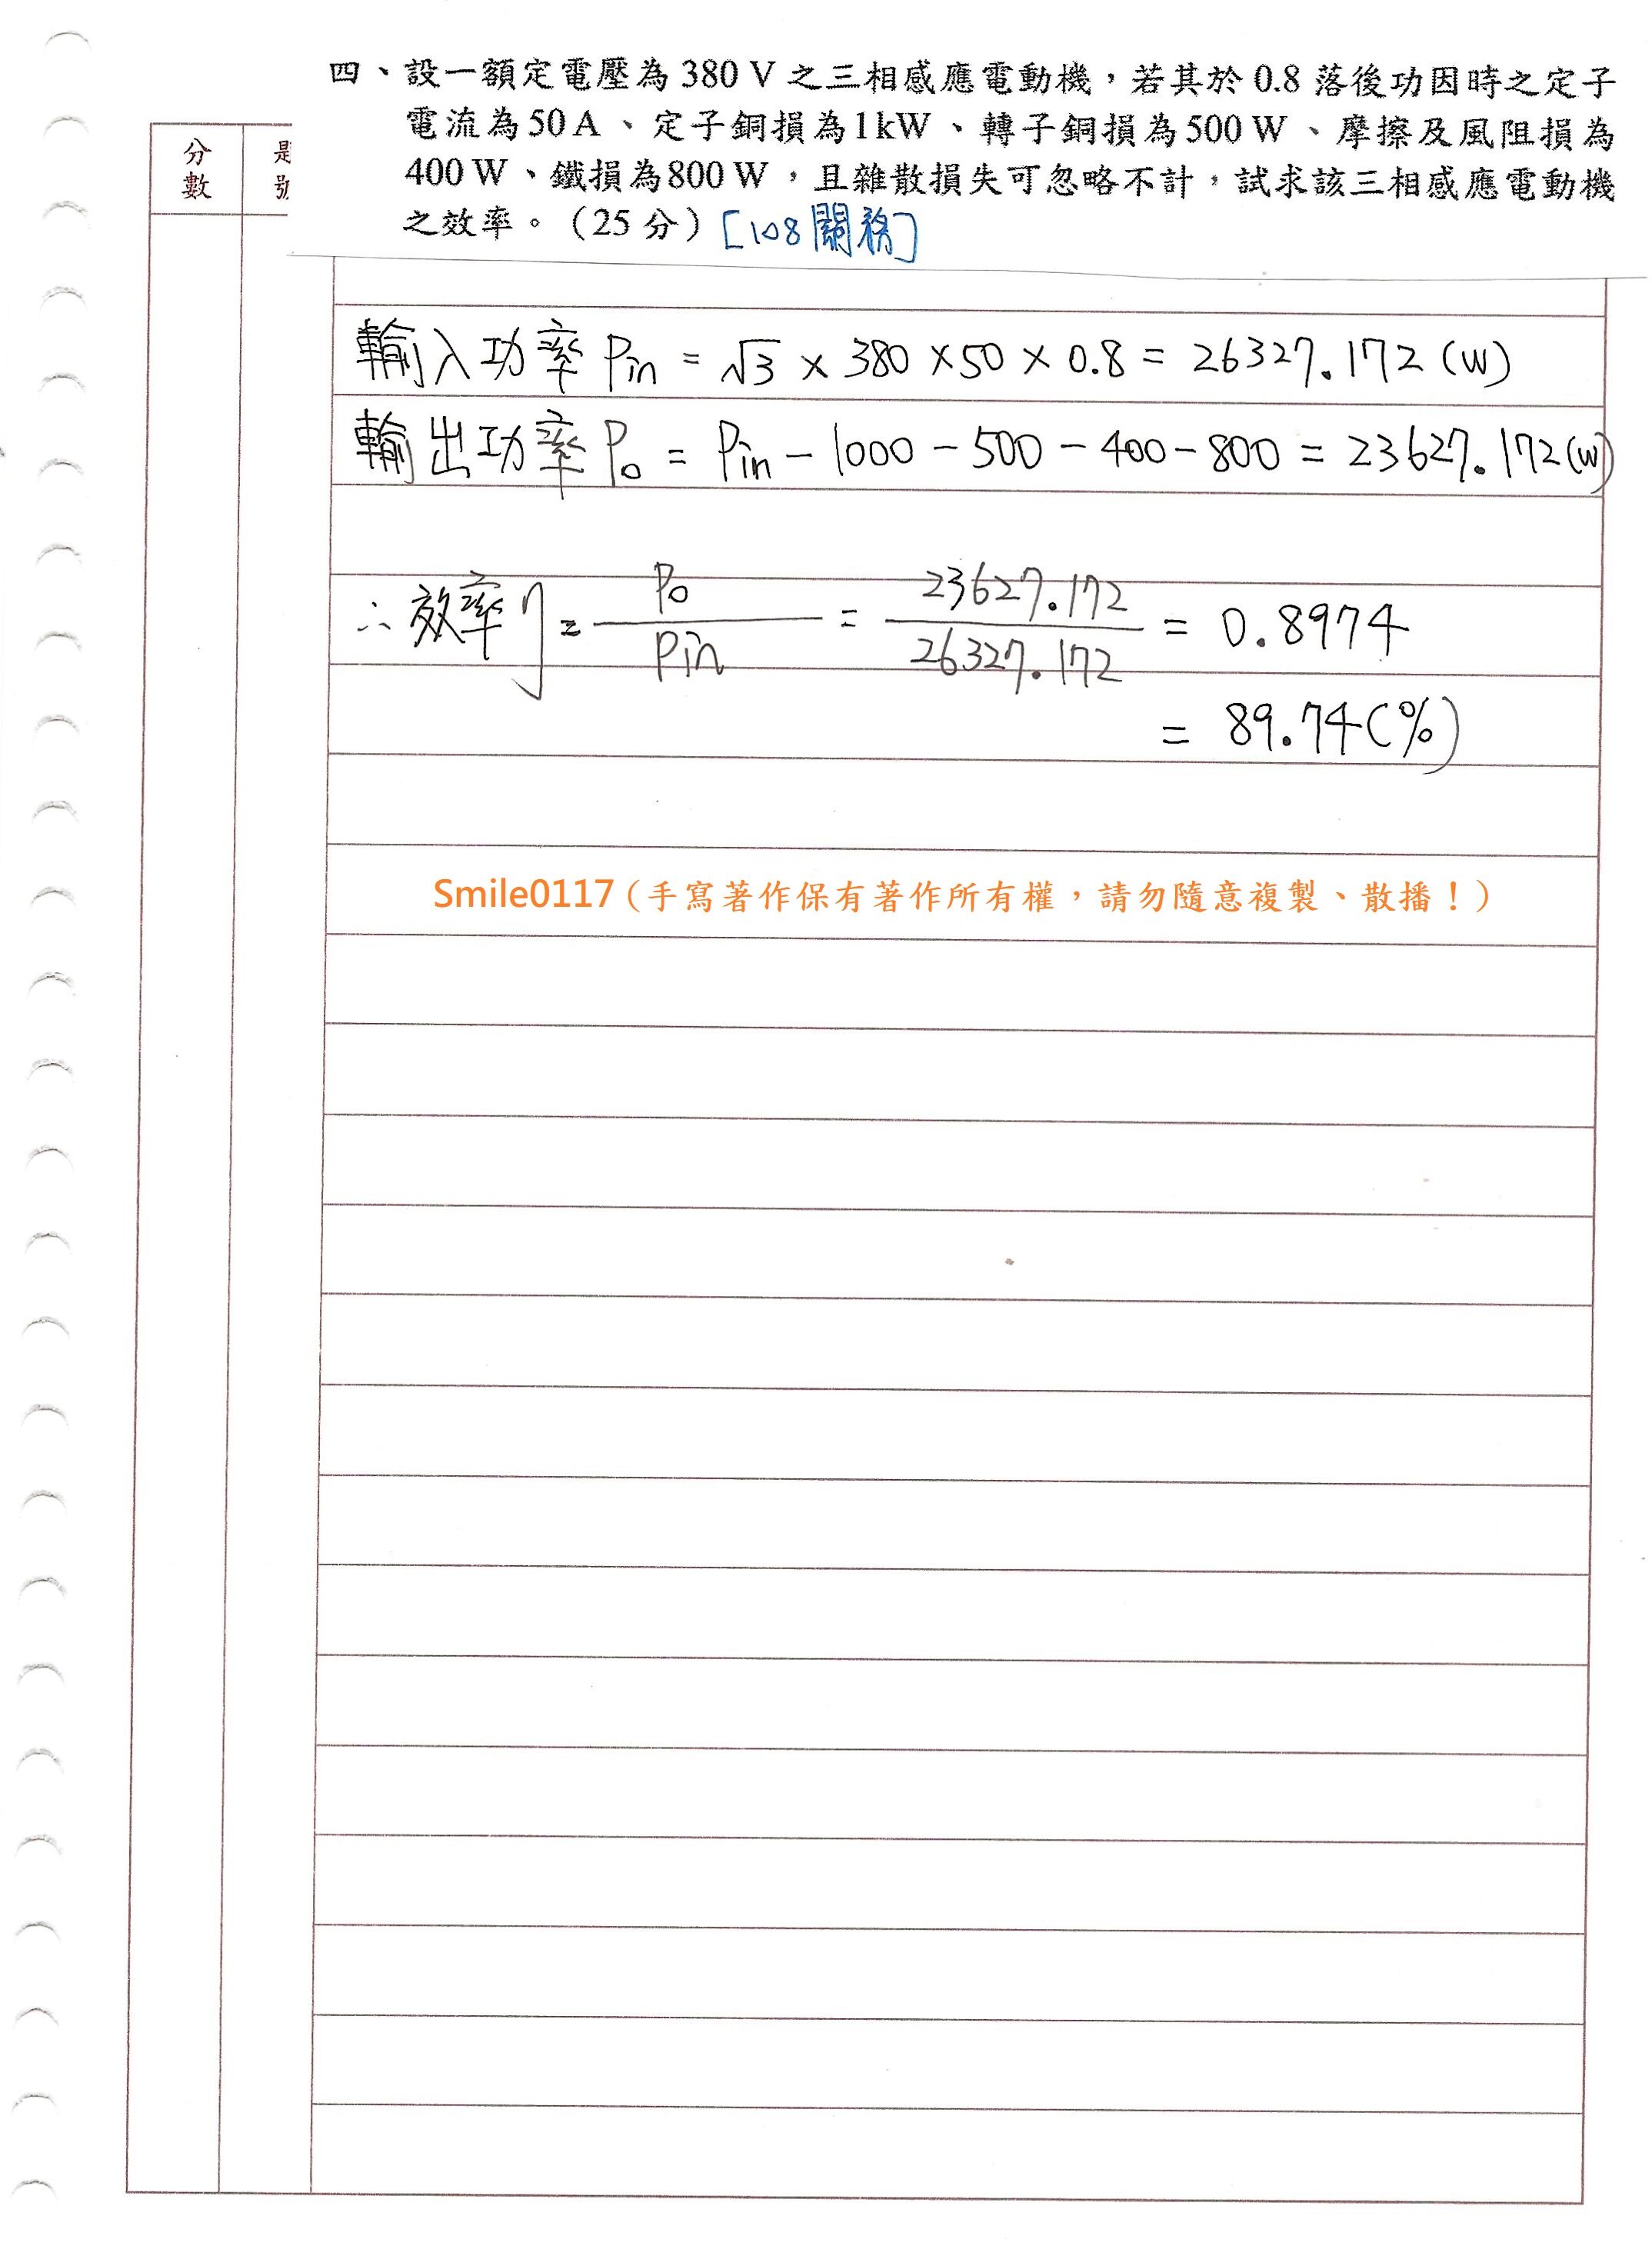 四、設一額定電壓為 380 V 之三相感應電動機，若其於 0.8 落後功因時之定子
電流為 50 A、定子銅損為 1 kW、轉子銅損為 500 W、摩擦及風阻損為
400 W、鐵損為 800 W，且雜散損失可忽略不計，試求該三相感應電動機
之效率。（25 分）[108關務]
分數
輸入功率 Pin = √3 × 380 × 50 × 0.8 = 26327.172 (W)
輸出功率 Po = Pin - 1000 - 500 - 400 - 800 = 23627.172 (W)
∴ 效率 η = Po / Pin = 23627.172 / 26327.172 = 0.8974
= 89.74 (%)
Smile0117（手寫著作保有著作所有權，請勿隨意複製、散播！）